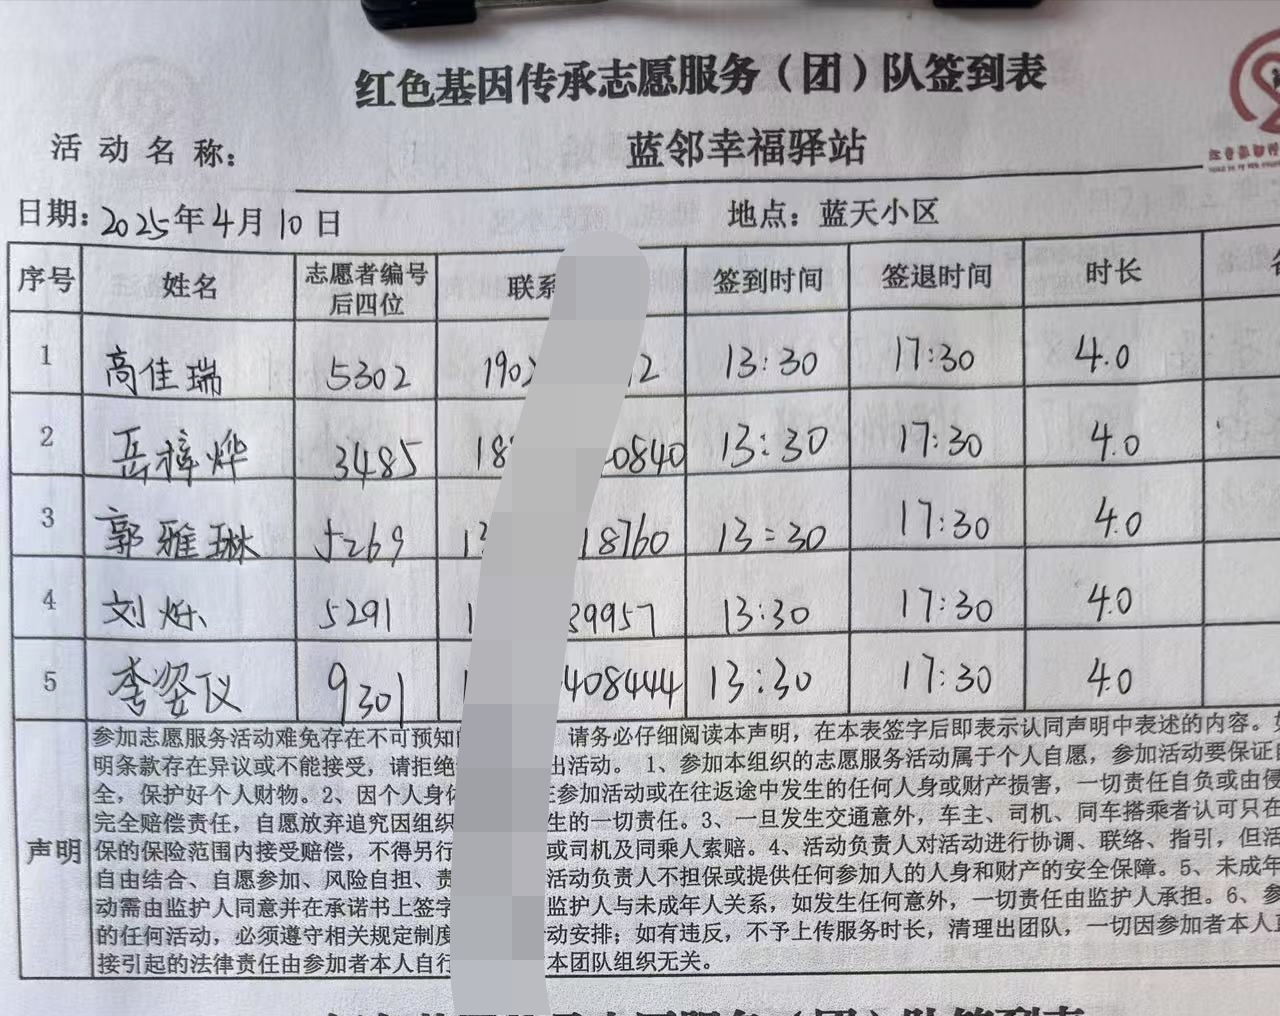 红色基因传承志愿服务（团）队签到表
活动名称：蓝邻幸福驿站
日期：2025年4月10日 地点：蓝天小区
序号 姓名 志愿者编号后四位 联系 签到时间 签退时间 时长
1 高佳瑞 5302 190 2 13:30 17:30 4.0
2 岳梓烨 3485 18 0840 13:30 17:30 4.0
3 郭雅琳 5269 13 18760 13:30 17:30 4.0
4 刘烁 5291 1 39957 13:30 17:30 4.0
5 李姿仪 9301 1 408444 13:30 17:30 4.0
声明
参加志愿服务活动难免存在不可预知 请务必仔细阅读本声明，在本表签字后即表示认同声明中表述的内容。
明条款存在异议或不能接受，请拒绝 出活动。 1、参加本组织的志愿服务活动属于个人自愿，参加活动要保证
全，保护好个人财物。2、因个人身 在参加活动或在往返途中发生的任何人身或财产损害，一切责任自负或由侵
完全赔偿责任，自愿放弃追究因组织 生的一切责任。3、一旦发生交通意外，车主、司机、同车搭乘者认可只在
保的保险范围内接受赔偿，不得另行 或司机及同乘人索赔。4、活动负责人对活动进行协调、联络、指引，但活
自由结合、自愿参加、风险自担、责 活动负责人不担保或提供任何参加人的人身和财产的安全保障。5、未成年
动需由监护人同意并在承诺书上签字 监护人与未成年人关系，如发生任何意外，一切责任由监护人承担。6、参
的任何活动，必须遵守相关规定制度 动安排；如有违反，不予上传服务时长，清理出团队，一切因参加者本人
接引起的法律责任由参加者本人自行 本团队组织无关。